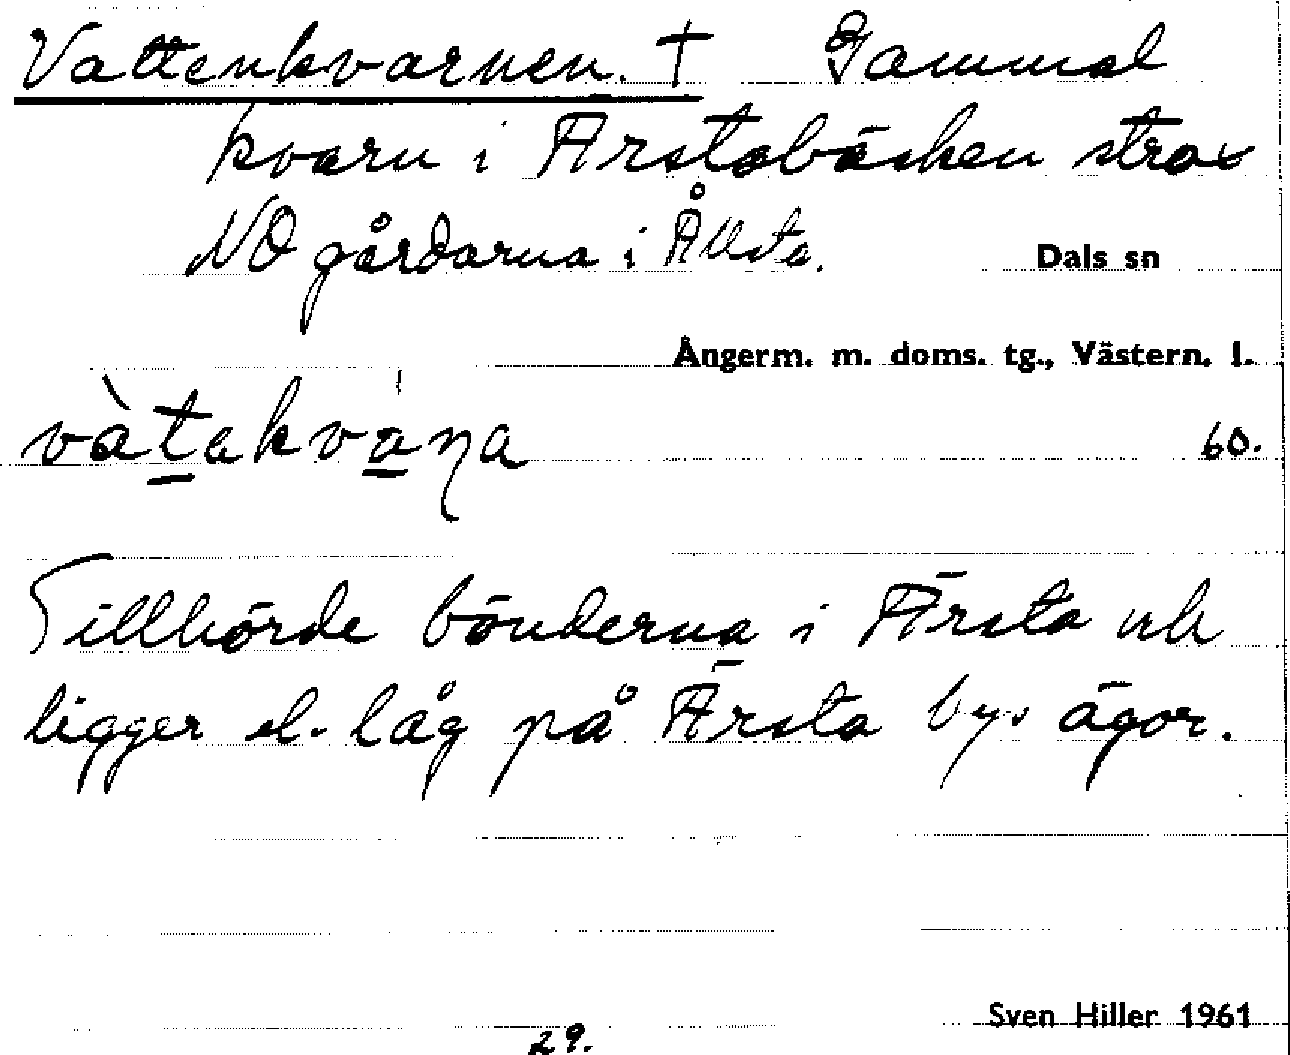 Vattenkvarnen. † Gammal
kvarn i Ärstabäcken strax
NO gårdarna i Ållsta.
Dals sn
Ångerm. m. doms. tg., Västern. l.
vàtakvána
60.
Tillhörde bönderna i Ärsta och
ligger el. låg på Ärsta bys ägor.
Sven Hiller 1961
29.